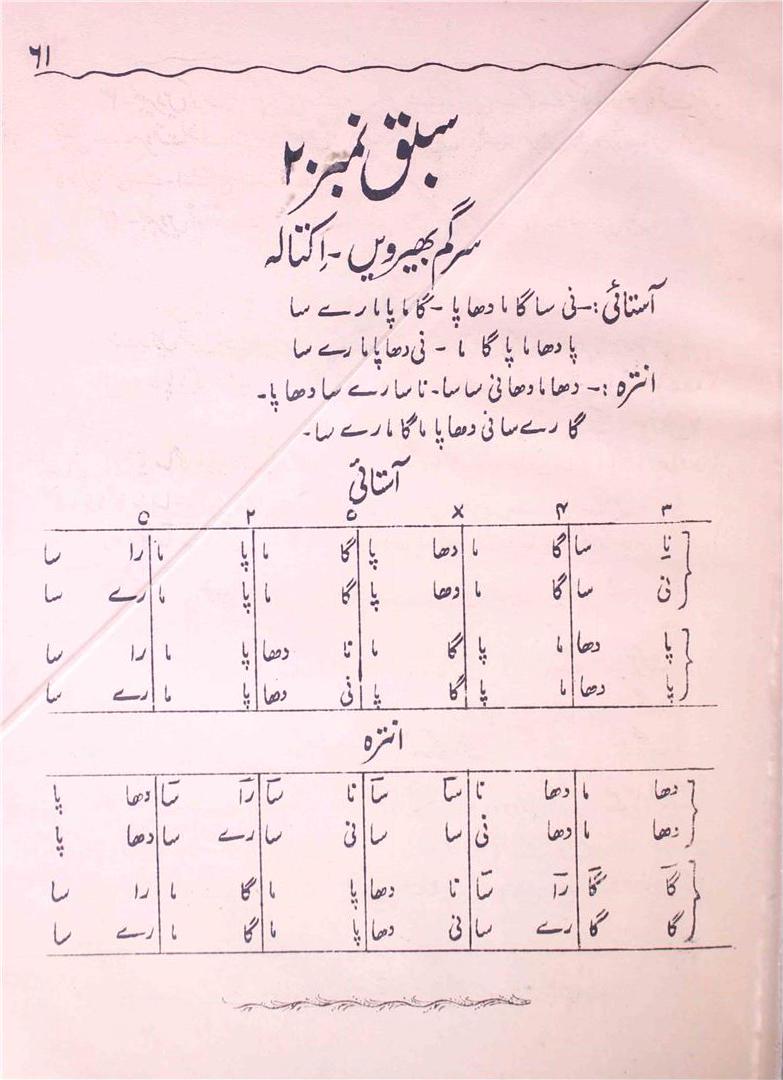 ۶۱
سبق نمبر ۲۰
سرگم بھیرویں - اِکتالہ
آستائی :- نی سا گا ما دھا پا - گا ما پا ما رے سا
پا دھا ما پا گا ما - نی دھا پا ما رے سا
انترہ :- دھا ما دھا نی سا سا - نا سا رے سا دھا پا -
گا رے سا نی دھا پا ما گا ما رے سا -
آستائی
۳ ۴ x ० ۲ ०
نا سا گا ما دھا پا گا ما پا ما را سا
نی سا گا ما دھا پا گا ما پا ما رے سا
پا دھا ما پا گا ما نا دھا پا ما را سا
پا دھا ما پا گا پا نی دھا پا ما رے سا
انترہ
دھا ما دھا نا سا سا نا سا را سا دھا پا
دھا ما دھا نی سا سا نی سا رے سا دھا پا
گا گا را سا نا دھا پا ما گا ما را سا
گا گا رے سا نی دھا پا ما گا ما رے سا